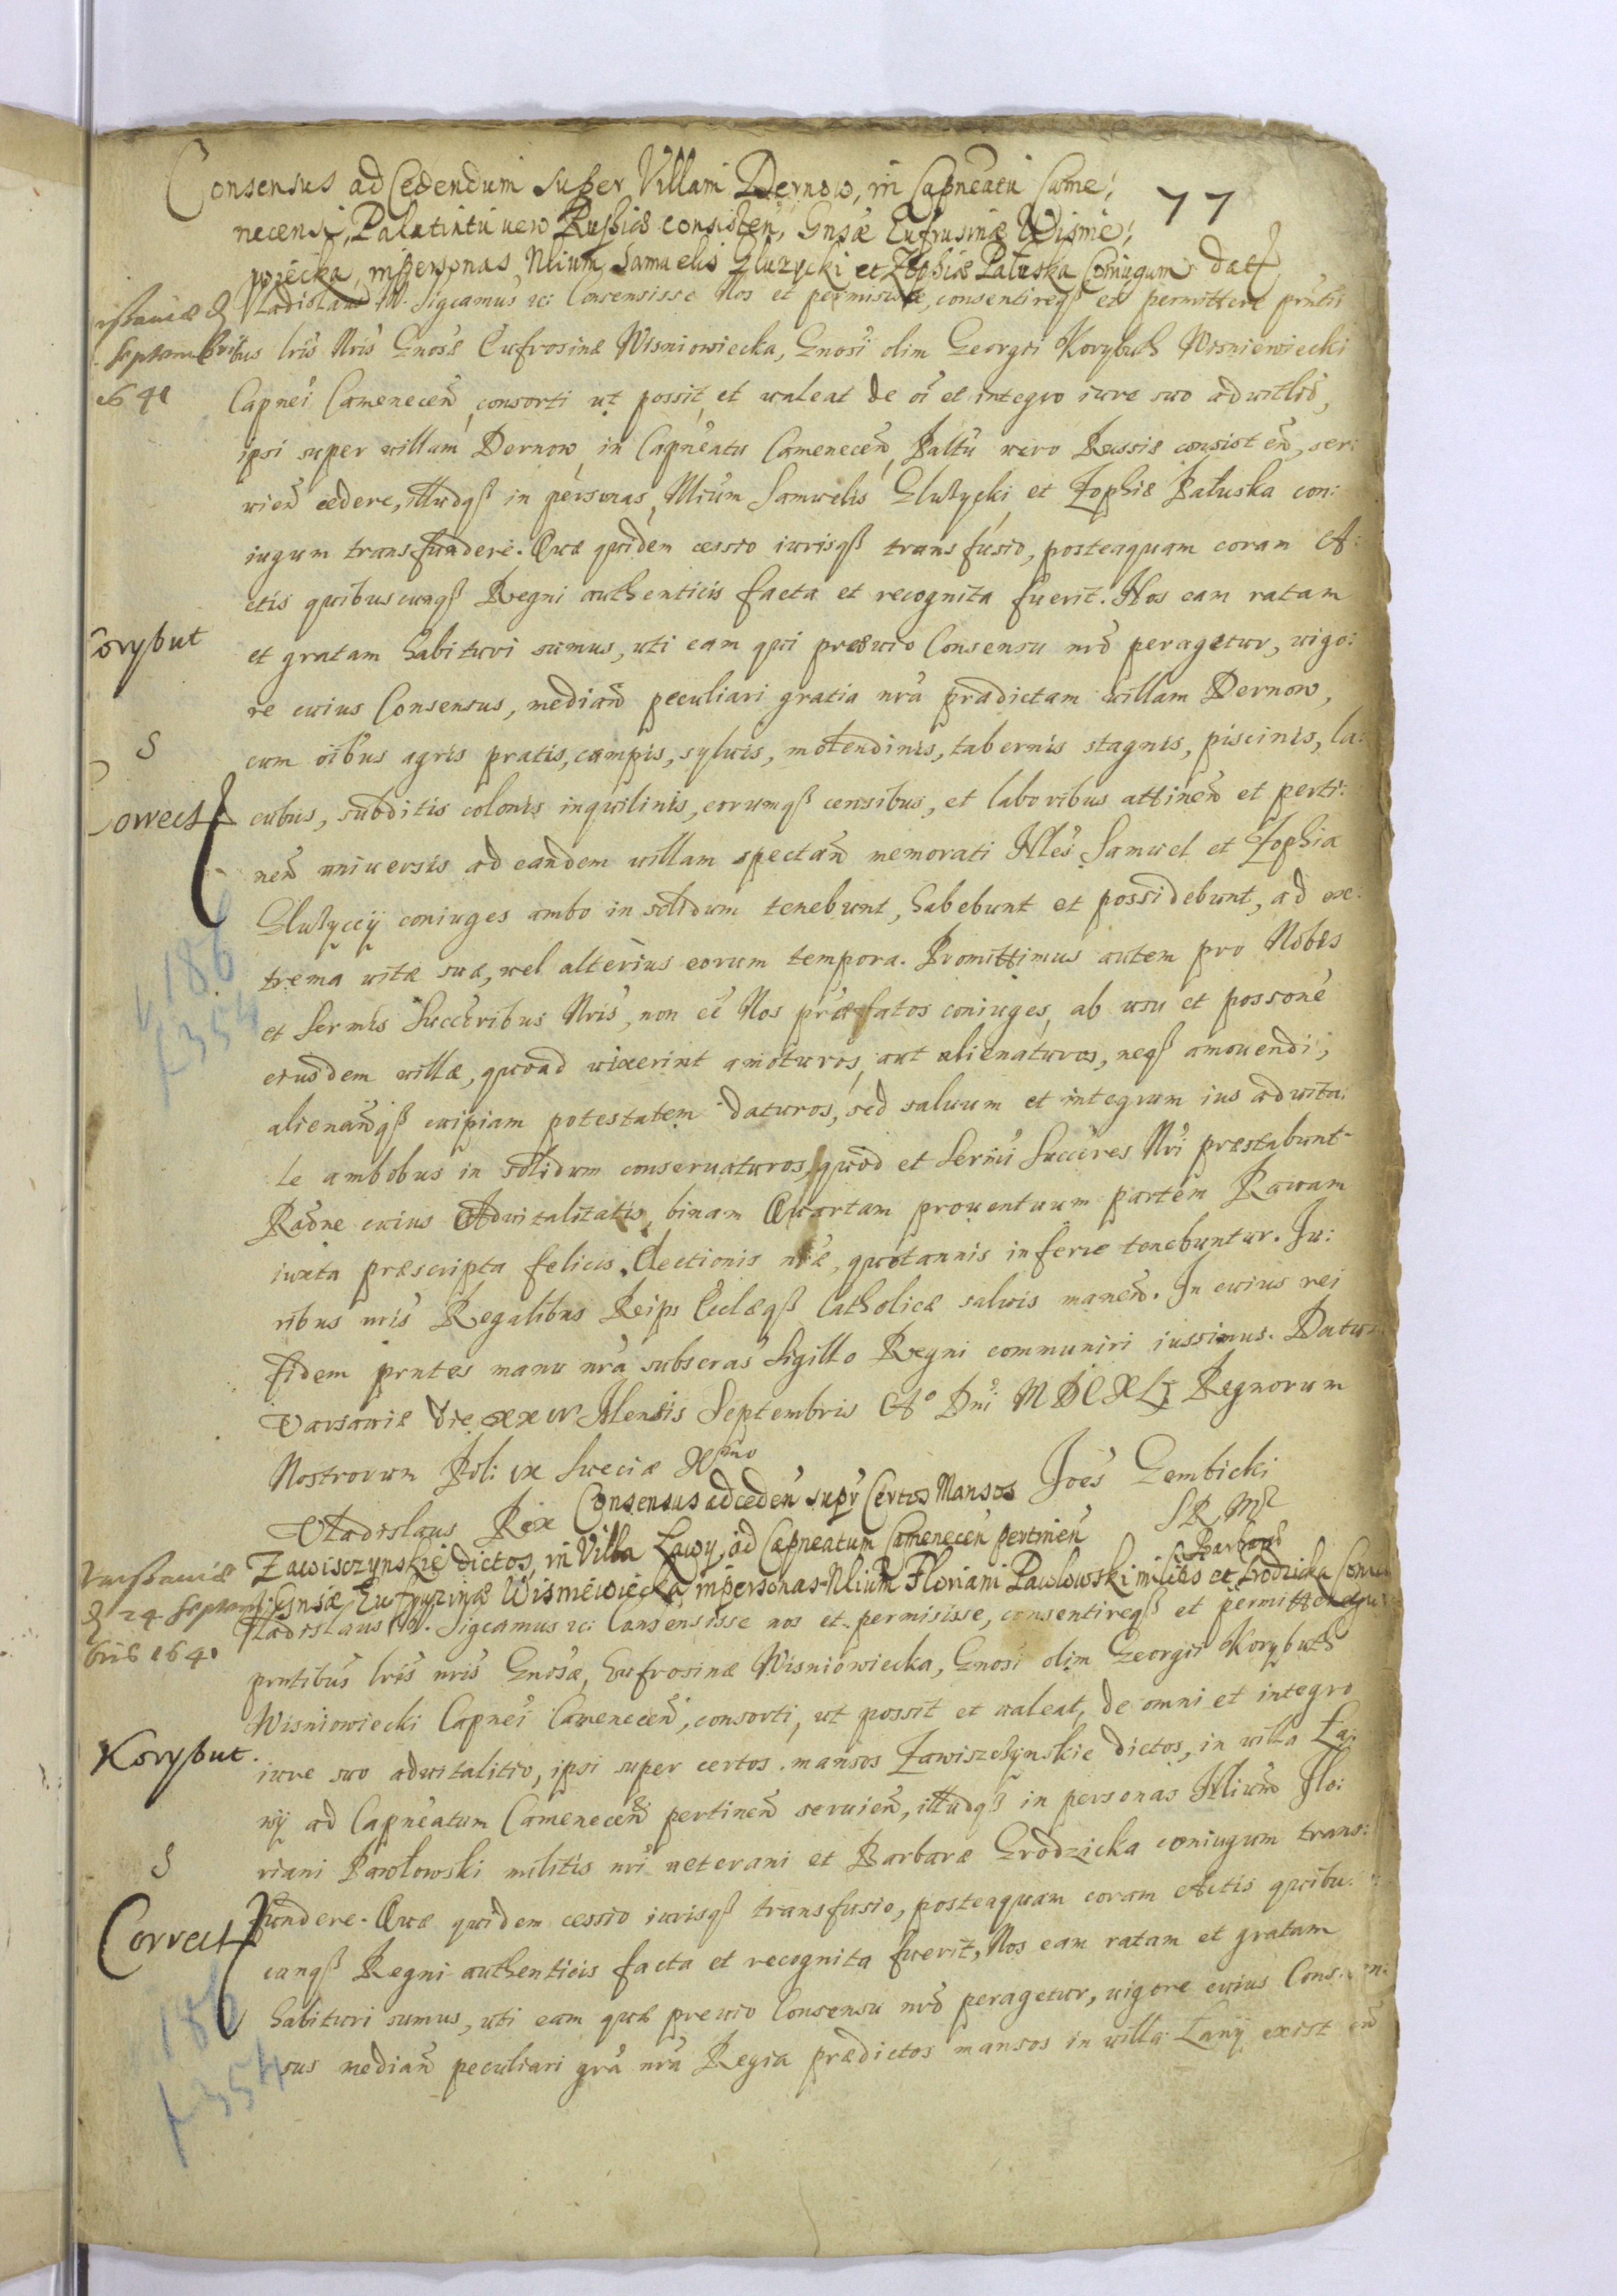 77
Consensus ad Cedendum super Villam Dernow, in Capneatu Came:
necensi, Palatintu vero Russiae consisten, Gnsae Eufrusinae Wisnie:
wiecka, in personas Nlium Samuelis Gluzycki et Zophiae Paluska Coniugum dat
Vladislaus IV. Sigcamus &c: Consensisse Nos et permisisse, consentireqß et permittere prntis
bus lris Nris Gnosae Eufrosinae Wisniowiecka, Gnosi olim Georgii Korybuth Wisniewiecki
Septembris
1641
Capnei Camenecen consorti ut possit et valeat de oi et integro iure suo advitlio,
ipsi super villam Dernow in Capneatu Camenecen Paltu vero Russiae consisten, ser:
vien cedere, illudqß in personas Nlium Samuelis Glużycki et Zophiae Pałuska con:
iugum transfundere. Quae quidem cessio iurisqß transfusio, posteaquam coram A:
ctis quibuscunqß Regni authenticis facta et recognita fuerit. Nos eam ratam
Korybut
et gratam habituri sumus, uti eam qui praevio Consensu nro peragetur, vigo:
re cuius Consensus, median peculiari gratia nra praedictam villam Dernow,
S
cum oibus agris pratis, campis, sylvis, molendinis, tabernis stagnis, piscinis, la:
Correct
cubus, subditis colonis inquilinis, eorumqß censibus, et laboribus attinen et perti:
nen universis ad eandem villam spectan memorati Nles Samuel et Zophia
Glużyccÿ coniuges ambo in solidum tenebunt, habebunt et possidebunt, ad ex:
186
trema vitae suae, vel alterius eorum tempora. Promittimus autem pro Nobis
f 354
et Sermis Succeribus Nris, non ee Nos praefatos coniuges, ab usu et possone
eiusdem villae, quoad vixerint amoturos, aut alienaturos, neqß amovendi,
alienandiqß cuipiam potestatem daturos, sed salvum et integrum ius advita:
le ambobus in solidum conservaturos, quod et Sermi Succeres Nri praestabunt
Raone cuius Advitalitatis, binam Quartam proventuum partem Ravam
iuxta praescripta felicis Electionis nrae, quotannis inferre tenebuntur. Iu:
ribus nris Regalibus Reips Ecclaeqß Catholicae salvis manen. In cuius rei
fidem prntes manu nra subscras Sigillo Regni communiri iussimus. Datum
Varsaviae die xxiv Mensis Septembris Ao Dni MDCXLI Regnorum
Nostrorum Pol: ix Sueciae Xmo
Vladislaus Rex
Joes Gembicki
S R Mt
Consensus ad ceden supr Certos Mansos
Zawisczynskie dictos, in Villa Lawy, ad Capneatum Camenecen pertinen
Gnsae Eufruzinae Wisniewiecka, in personas Nlium Floriani Pawlowski militis et Barbara Grodzicka Coniu
Varssaviae
d 24 Septem
bris 1641
Vladislaus IV. Sigcamus &c: Consensisse nos et permisisse, consentireqß et permittere
prntibus lris nris Gnosae, Eufrosinae Wisniowiecka, Gnosi olim Georgii Korybuth
Wisniowiecki Capnei Camenecen, consorti, ut possit et valeat, de omni et integro
Korybut.
iure suo advitalitio, ipsi super certos mansos Zawiszczynskie dictos, in villa La:
wÿ ad Capneatum Camenecen pertinen servien, illudqß in personas Nlium Flo:
S
riani Pawłowski militis nri veterani et Barbarae Grodzicka coniugum trans:
Correct
fundere. Quae quidem cessio iurisqß transfusio, posteaquam coram Actis quibu
cunqß Regni authenticis facta et recognita fuerit, Nos eam ratam et gratam
186
habituri sumus, uti eam quae previo Consensu nro peragetur, vigore cuius Consen:
f 354
sus median peculiari gra nra Regia praedictos mansos in villa Lawÿ existen